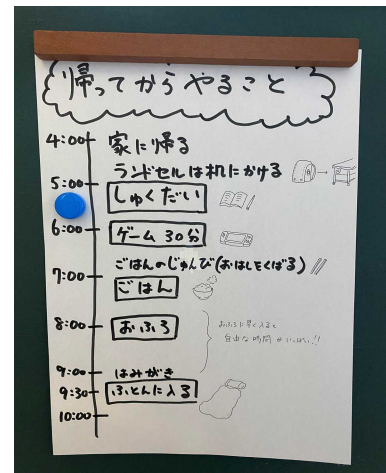 帰ってからやること
4:00 家に帰る
ランドセルは机にかける
5:00 しゅくだい
6:00 ゲーム 30分
ごはんのじゅんび(おはしをくばる)
7:00 ごはん
8:00 おふろ
おふろに早く入ると
自由な時間がいっぱい!!
9:00 はみがき
9:30 ふとんに入る
10:00